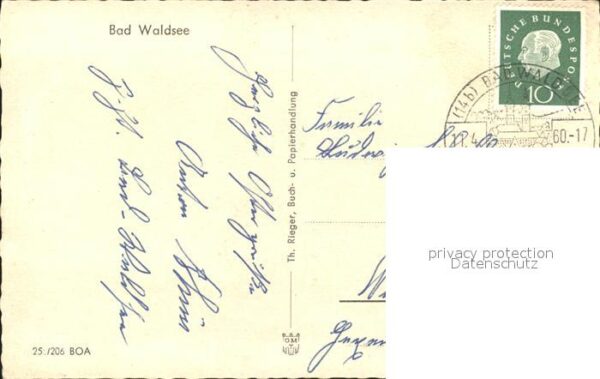 Bad Waldsee
Herzliche Ostergrüße
Anton
z.Zt. Bad-Waldsee
Th. Rieger, Buch- u. Papierhandlung
Familie
Ludwig
DEUTSCHE BUNDESPOST
10
(14b) BAD WALDSEE
60.-17
privacy protection
Datenschutz
25:/206 BOA